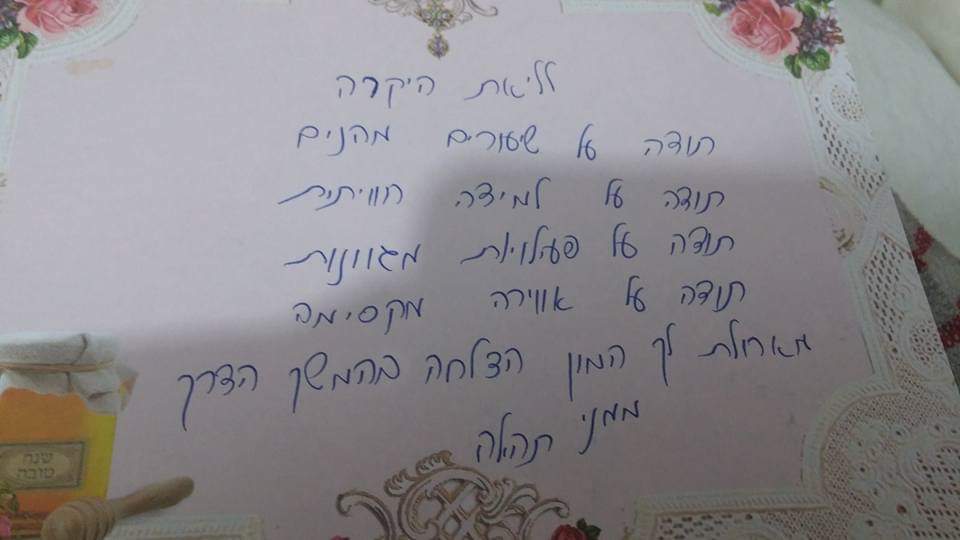 לליאת היקרה
תודה על שיעורים מהנים
תודה על למידה חוויתית
תודה על פעילויות מגוונות
תודה על אווירה מקסימה
מאחלת לך המון הצלחה בהמשך הדרך
ממני תהילה
שנה
טובה